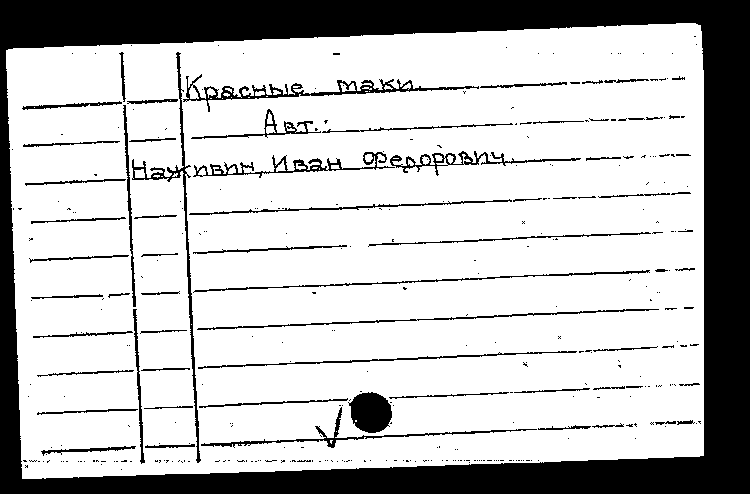 Красные маки.
Авт.:
Наживин, Иван Федорович.